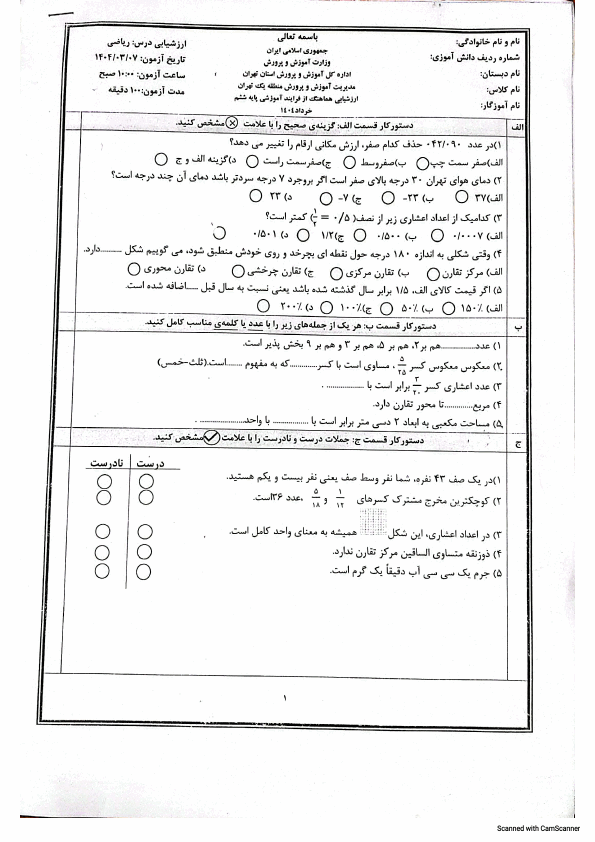 باسمه تعالی
نام و نام خانوادگی:
جمهوری اسلامی ایران
ارزشیابی درس: ریاضی
شماره ردیف دانش آموزی:
وزارت آموزش و پرورش
تاریخ آزمون: ۱۴۰۴/۰۳/۰۷
نام دبستان:
اداره کل آموزش و پرورش استان تهران
ساعت آزمون: ۱۰:۰۰ صبح
نام کلاس:
مدیریت آموزش و پرورش منطقه یک تهران
مدت آزمون: ۱۰۰ دقیقه
نام آموزگار:
ارزشیابی هماهنگ از فرایند آموزشی پایه ششم
خرداد ۱۴۰۴
الف
دستور کار قسمت الف: گزینه‌ی صحیح را با علامت ☒ مشخص کنید.
۱) در عدد ۰۴۲/۰۹۰ حذف کدام صفر، ارزش مکانی ارقام را تغییر می دهد؟
الف) صفر سمت چپ ب) صفر وسط ج) صفر سمت راست د) گزینه الف و ج
۲) دمای هوای تهران ۳۰ درجه بالای صفر است اگر بروجرد ۷ درجه سردتر باشد دمای آن چند درجه است؟
الف) ۳۷ ب) ۲۳- ج) ۷- د) ۲۳
۳) کدامیک از اعداد اعشاری زیر از نصف (۱/۲ = ۰/۵) کمتر است؟
الف) ۰/۰۰۰۷ ب) ۰/۵۰۰ ج) ۱/۲ د) ۰/۵۰۱
۴) وقتی شکلی به اندازه ۱۸۰ درجه حول نقطه ای بچرخد و روی خودش منطبق شود، می گوییم شکل ........دارد.
الف) مرکز تقارن ب) تقارن مرکزی ج) تقارن چرخشی د) تقارن محوری
۵) اگر قیمت کالای الف، ۱/۵ برابر سال گذشته شده باشد یعنی نسبت به سال قبل ......اضافه شده است.
الف) ۱۵۰٪ ب) ۵۰٪ ج) ۱۰۰٪ د) ۲۰۰٪
ب
دستور کار قسمت ب: هر یک از جمله‌های زیر را با عدد یا کلمه‌ی مناسب کامل کنید.
۱) عدد................هم بر۲، هم بر ۵، هم بر ۳ و هم بر ۹ بخش پذیر است.
۲) معکوس معکوس کسر ۵/۲۵، مساوی است با کسر............که به مفهوم ........است.(ثلث-خمس)
۳) عدد اعشاری کسر ۳/۲۰ برابر است با ................ .
۴) مربع............تا محور تقارن دارد.
۵) مساحت مکعبی به ابعاد ۲ دسی متر برابر است با .............. با واحد.................. .
ج
دستور کار قسمت ج: جملات درست و نادرست را با علامت ✓ مشخص کنید.
درست نادرست
۱) در یک صف ۴۳ نفره، شما نفر وسط صف یعنی نفر بیست و یکم هستید.
۲) کوچکترین مخرج مشترک کسرهای ۱/۱۲ و ۵/۱۸، عدد ۳۶است.
۳) در اعداد اعشاری، این شکل همیشه به معنای واحد کامل است.
۴) ذوزنقه متساوی الساقین مرکز تقارن ندارد.
۵) جرم یک سی سی آب دقیقاً یک گرم است.
۱
Scanned with CamScanner